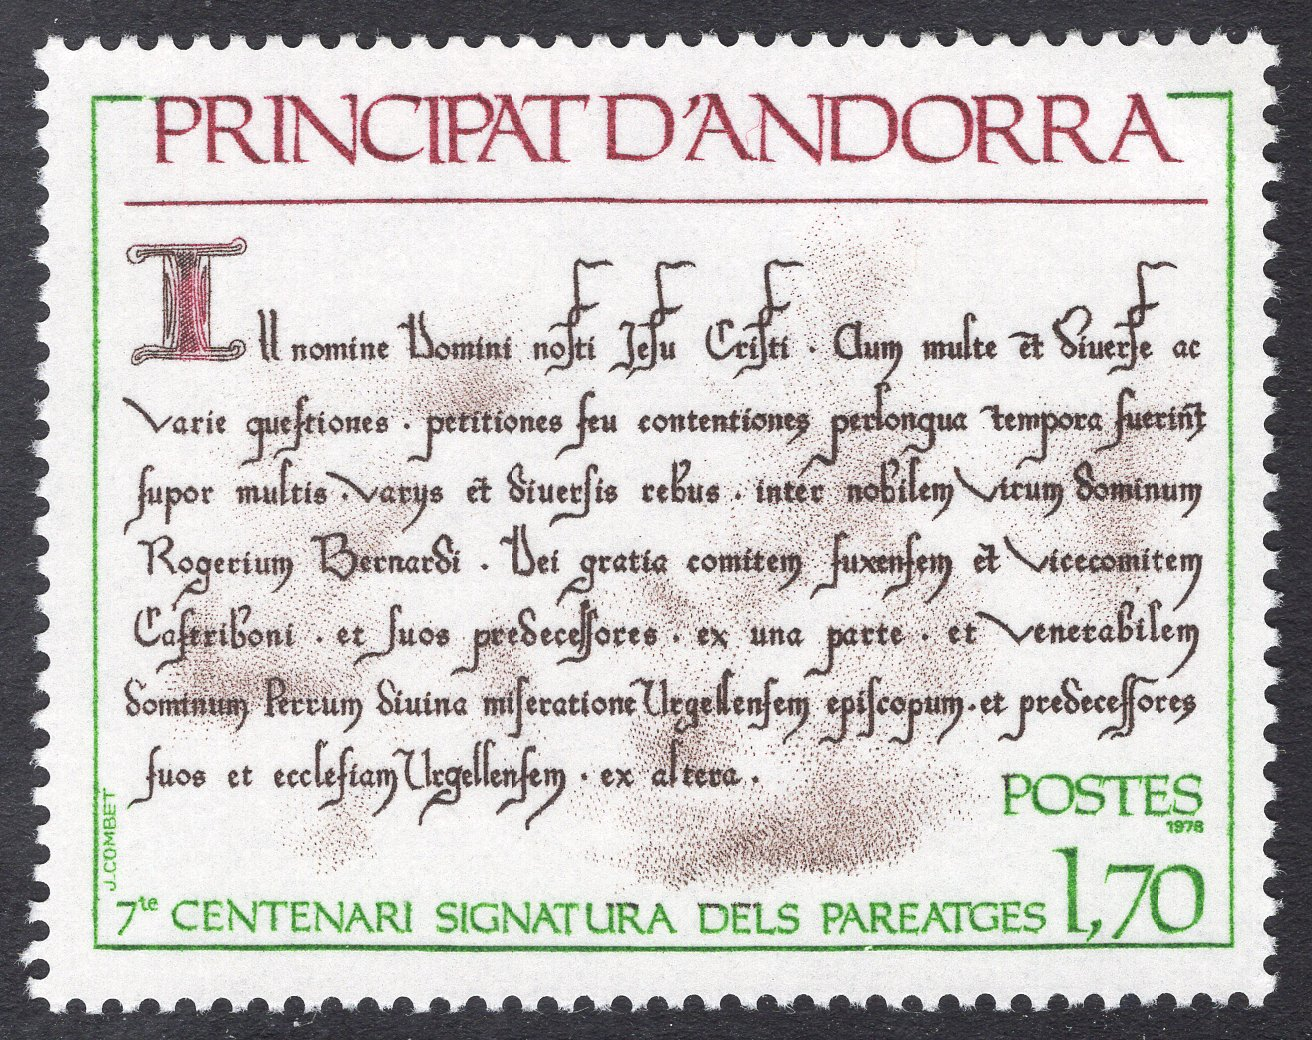 PRINCIPAT D'ANDORRA
In nomine Domini nosti Jesu Cristi · Cum multe et diuerse ac
varie questiones · petitiones seu contentiones perlongua tempora fuerint
supor multis · varys et diuersis rebus · inter nobilem virum dominum
Rogerium Bernardi · Dei gratia comitem fuxensem et vicecomitem
Castriboni · et suos predecessores · ex una parte · et venerabilem
dominum Petrum diuina miseratione Urgellensem episcopum · et predecessores
suos et ecclesiam Urgellensem · ex altera ·
POSTES
1978
J. COMBET
7te CENTENARI SIGNATURA DELS PAREATGES 1,70